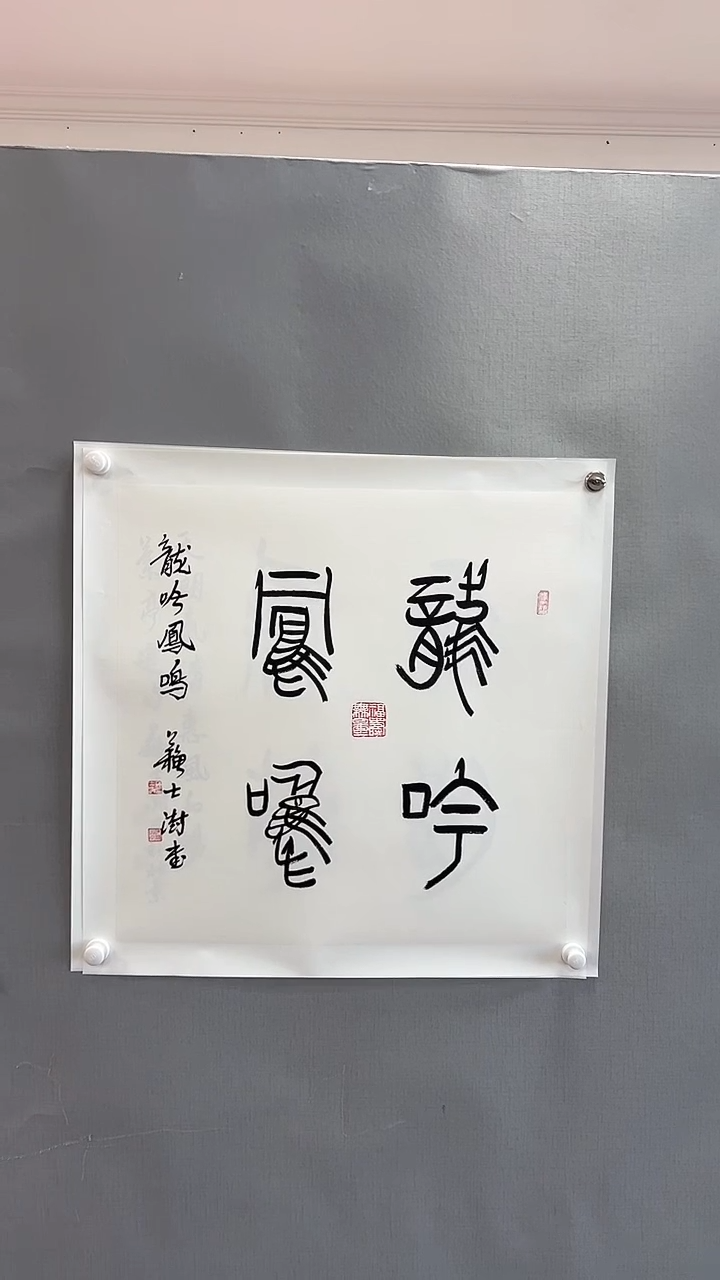 龍吟
鳳鳴
龍吟鳳鳴 蘇士澍書